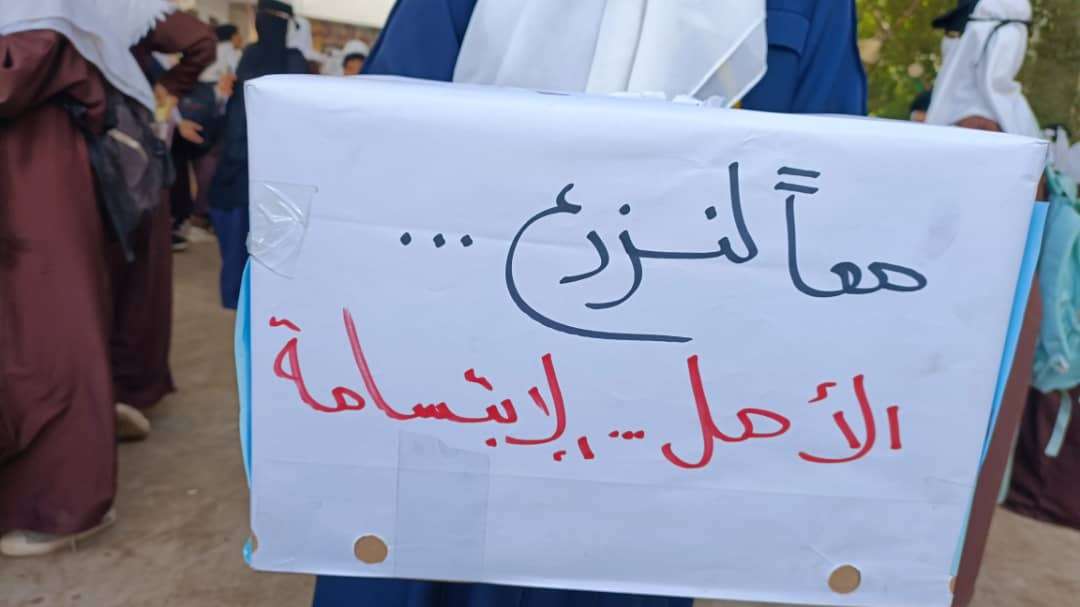 معاً لنزرع ...
الأمل ... الإبتسامة